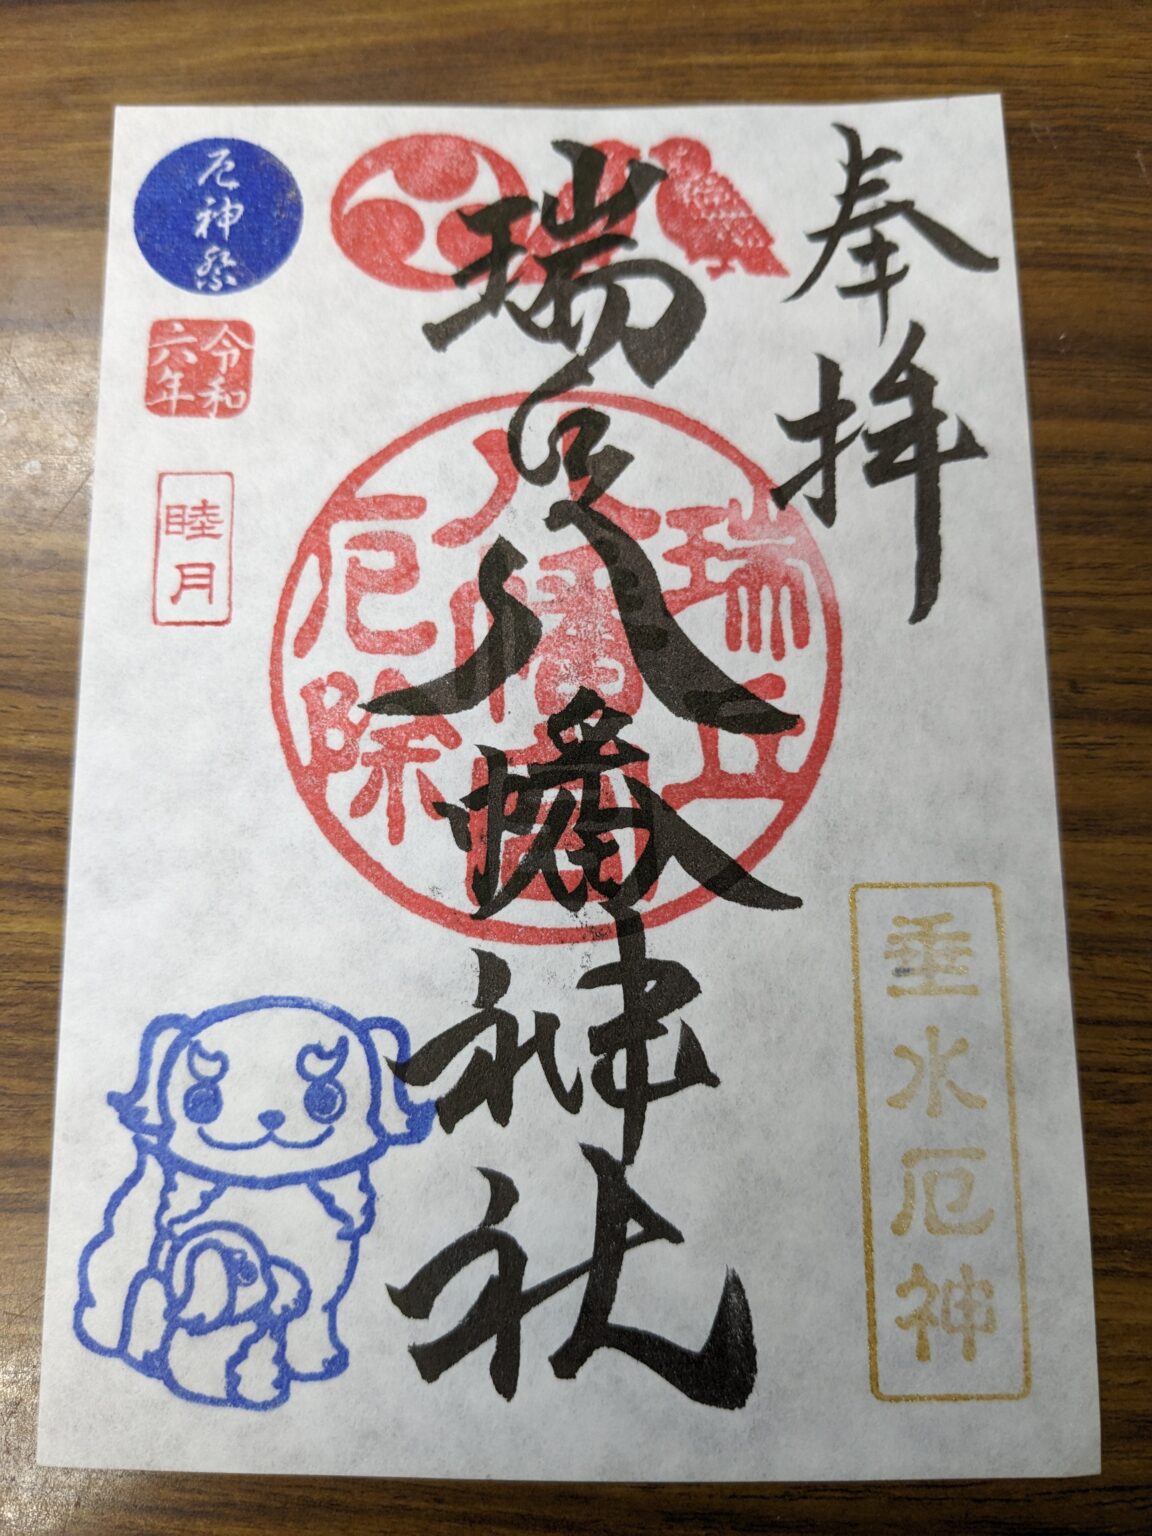 奉拝
瑞丘八幡神社
瑞丘
八幡
厄除
厄神祭
令和
六年
睦月
垂水厄神